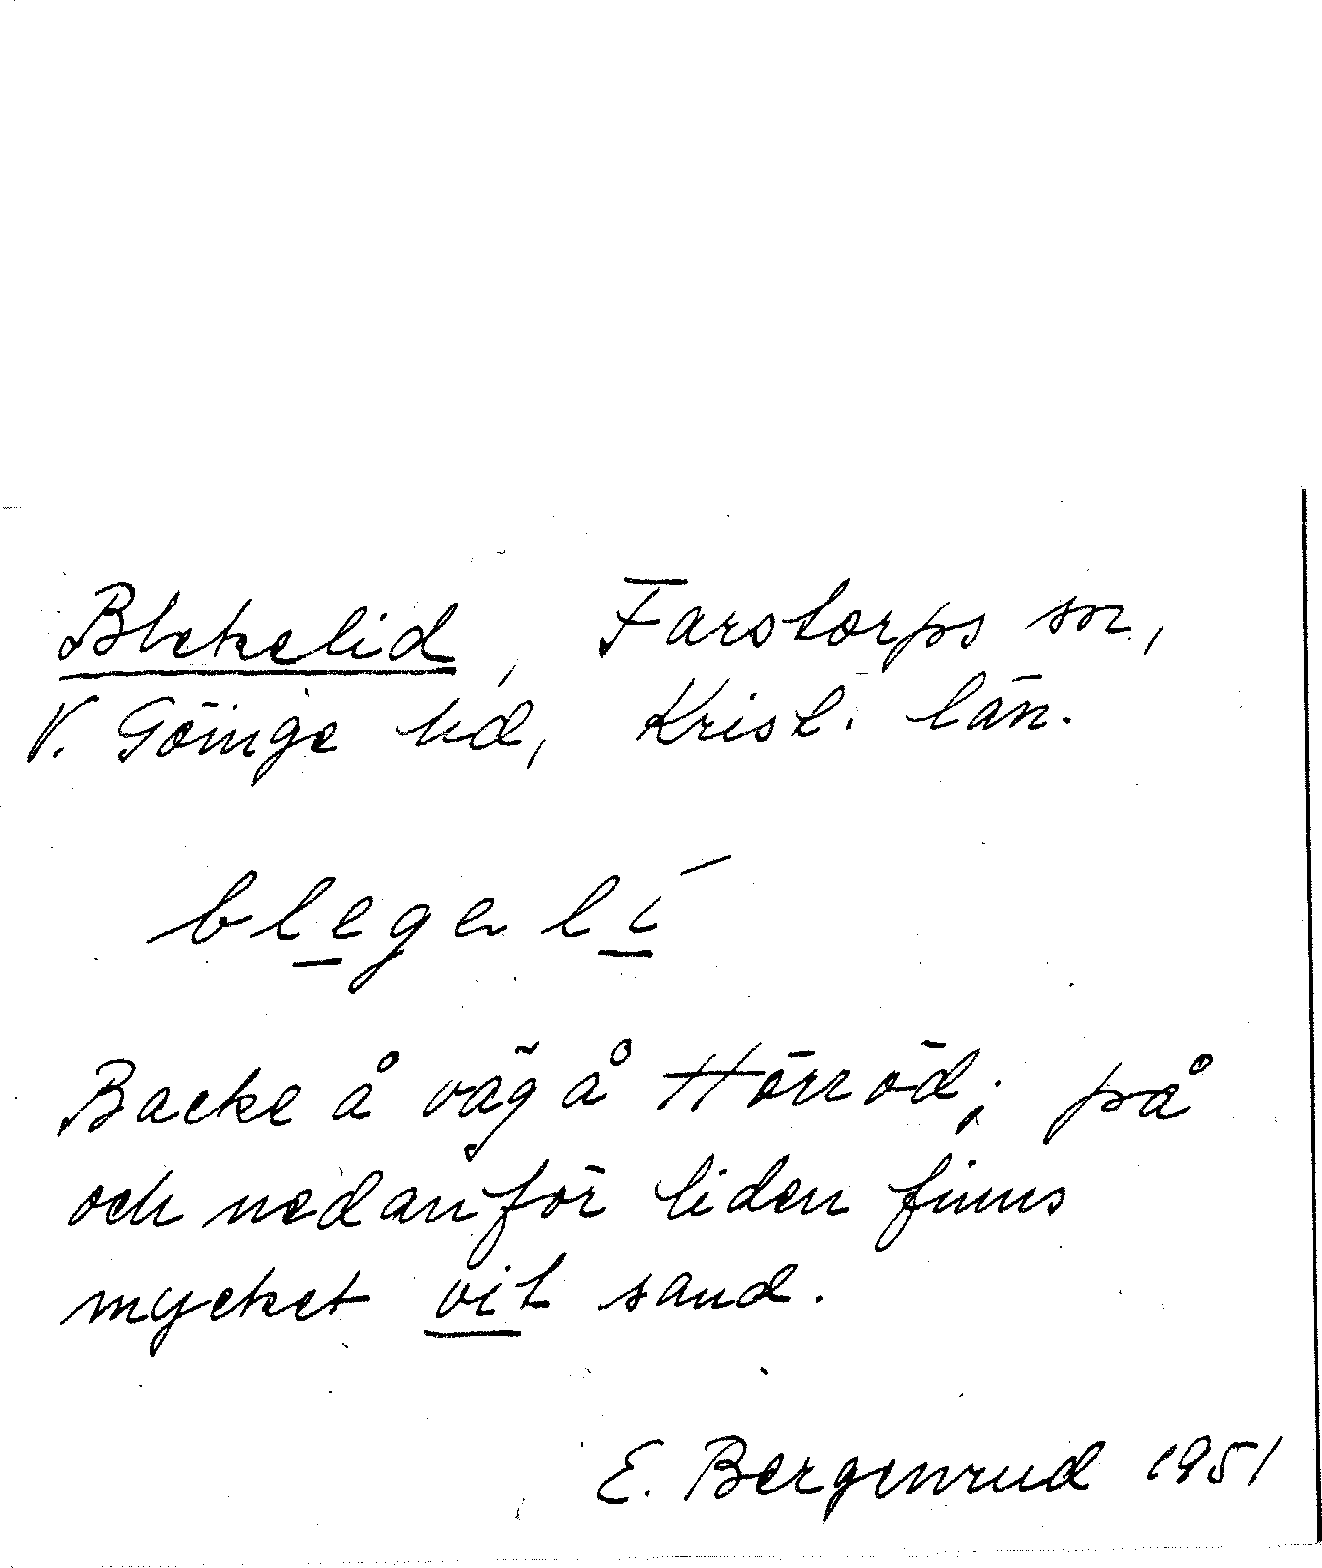 Blekelid, Farstorps sn,
V. Göinge hd, Krist. län.
blegə lí
Backe å väg å Hörröd; på
och nedanför liden finns
mycket vit sand.
E. Bergenrud 1951